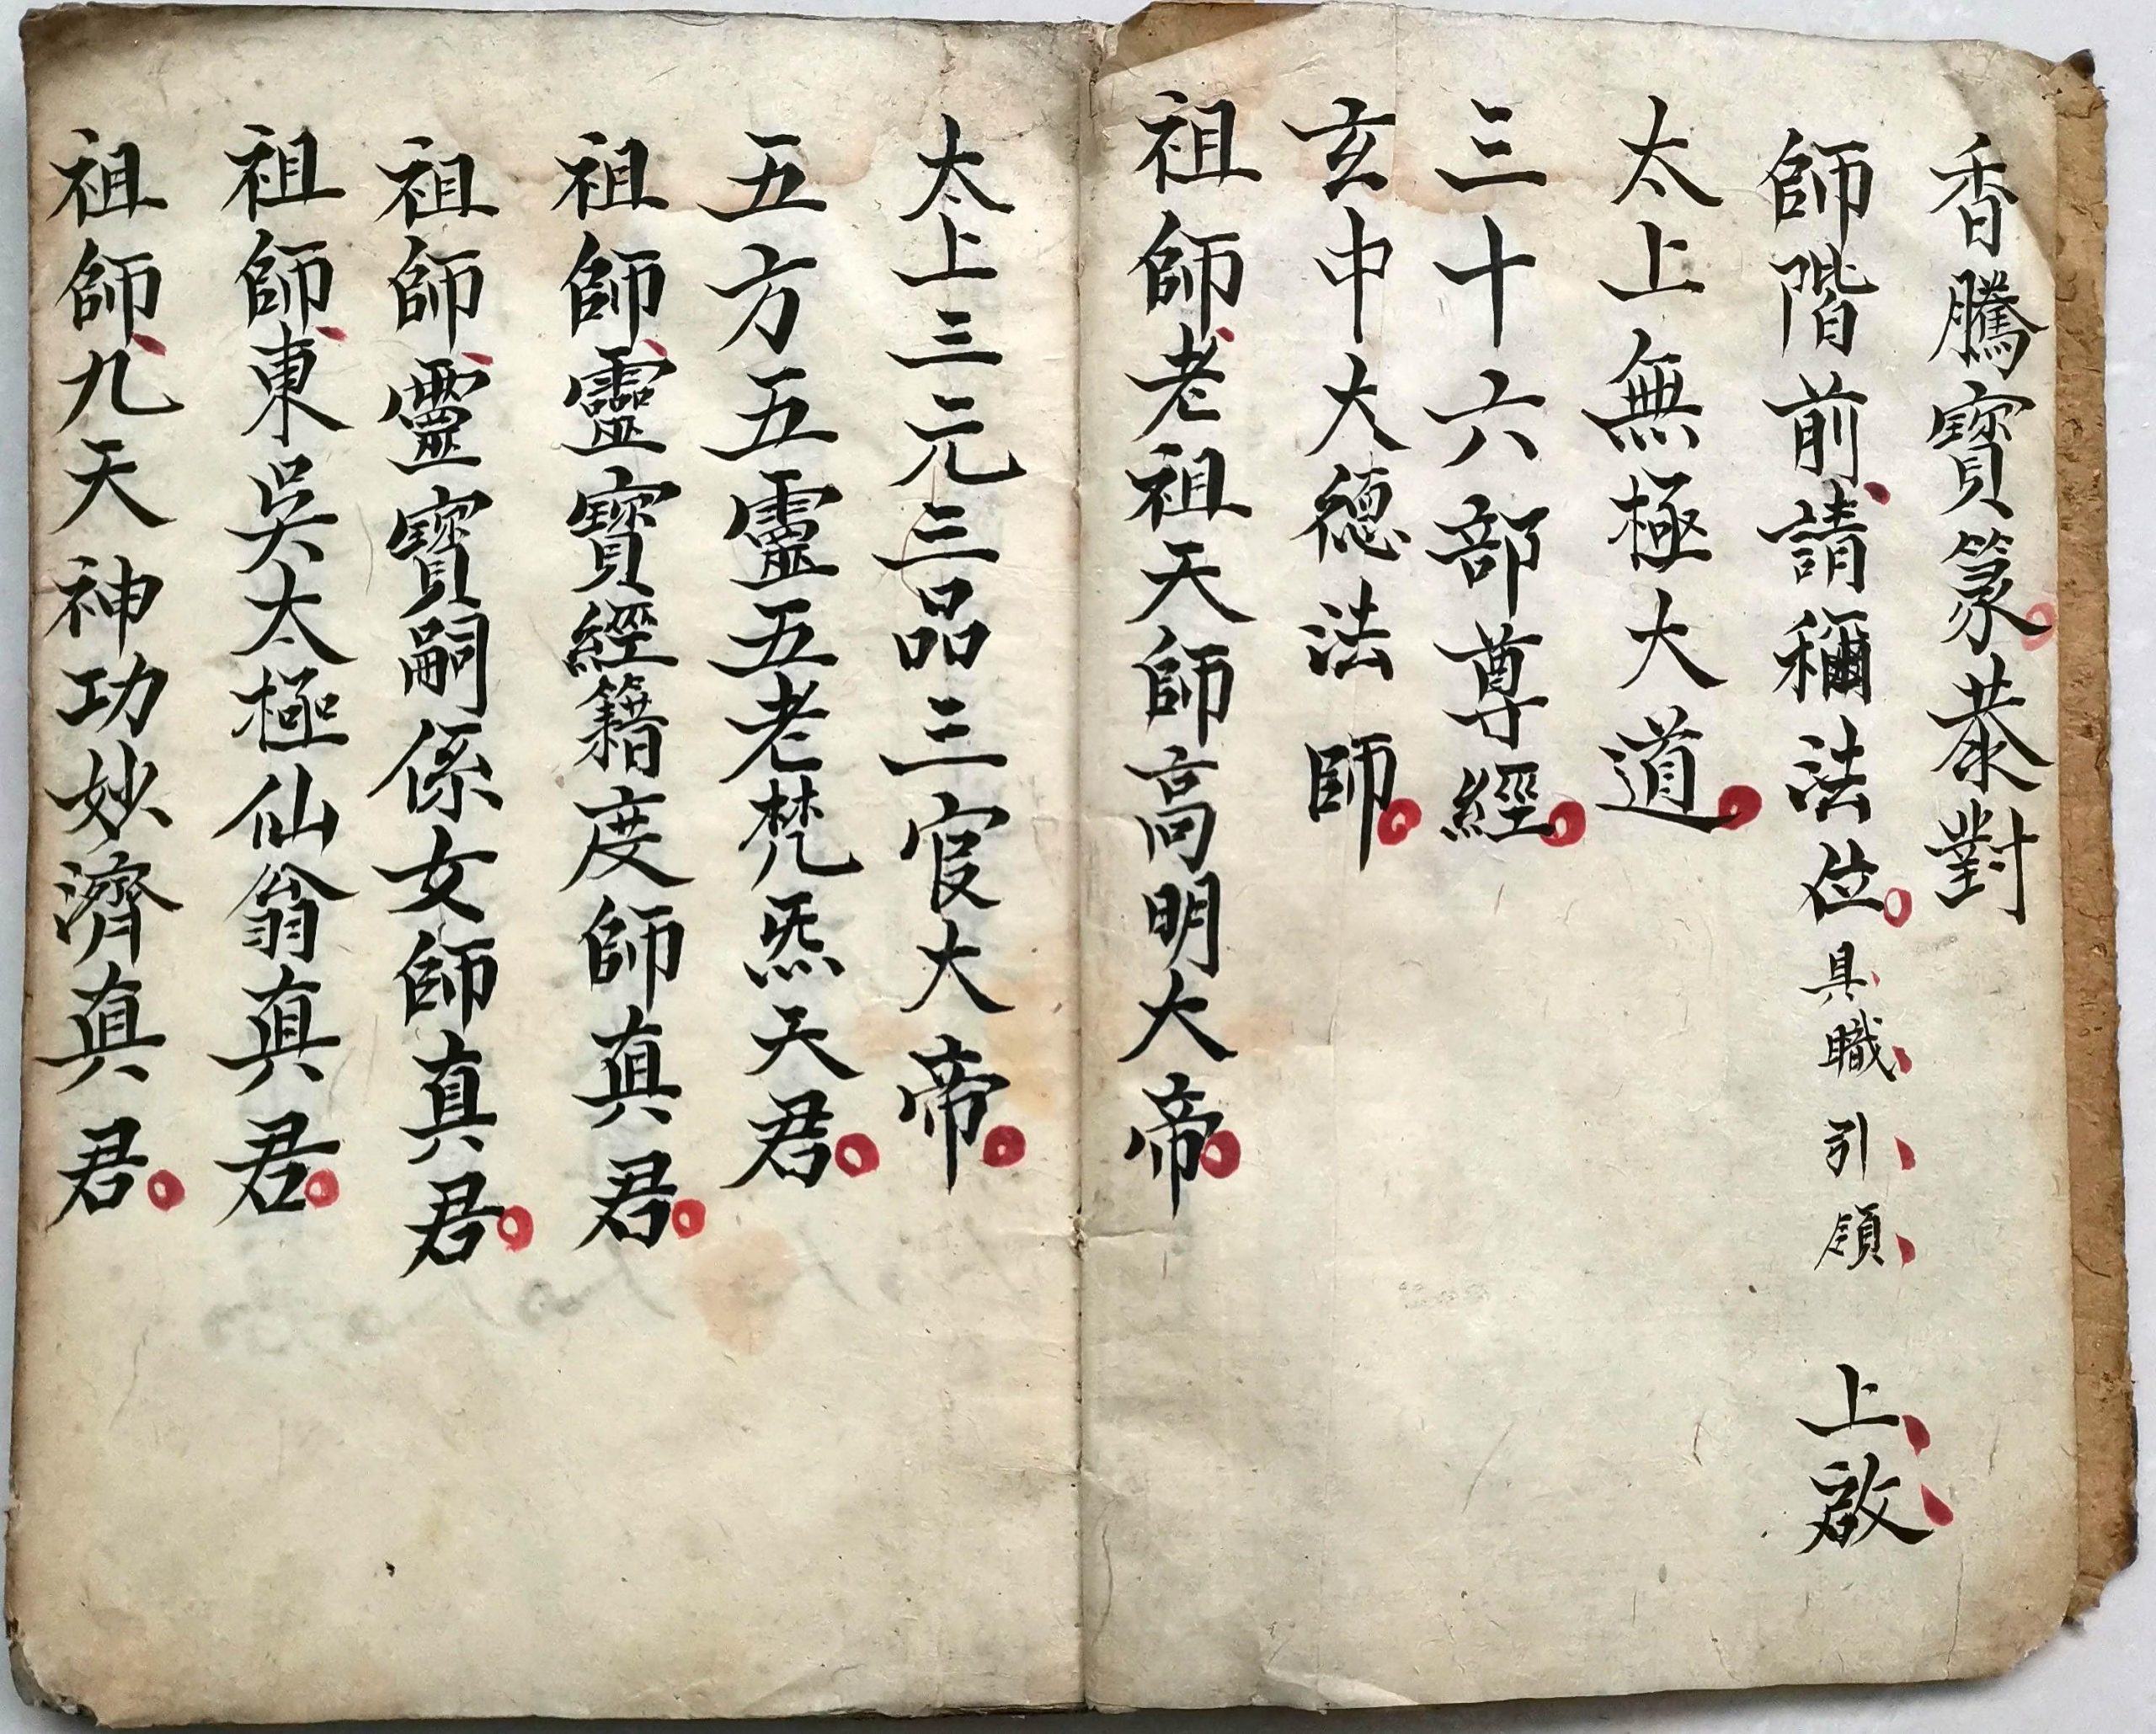 香騰寶篆。恭對
師階前、請稱法位。具、職、引、領、上、啟、
太上無極大道。
三十六部尊經。
玄中大德法師。
祖師、老祖天師高明大帝。
太上三元三品三官大帝。
五方五靈五老梵炁天君。
祖師、靈寶經籍度師真君。
祖師、靈寶嗣係女師真君。
祖師、東吳太極仙翁真君。
祖師、九天神功妙濟真君。